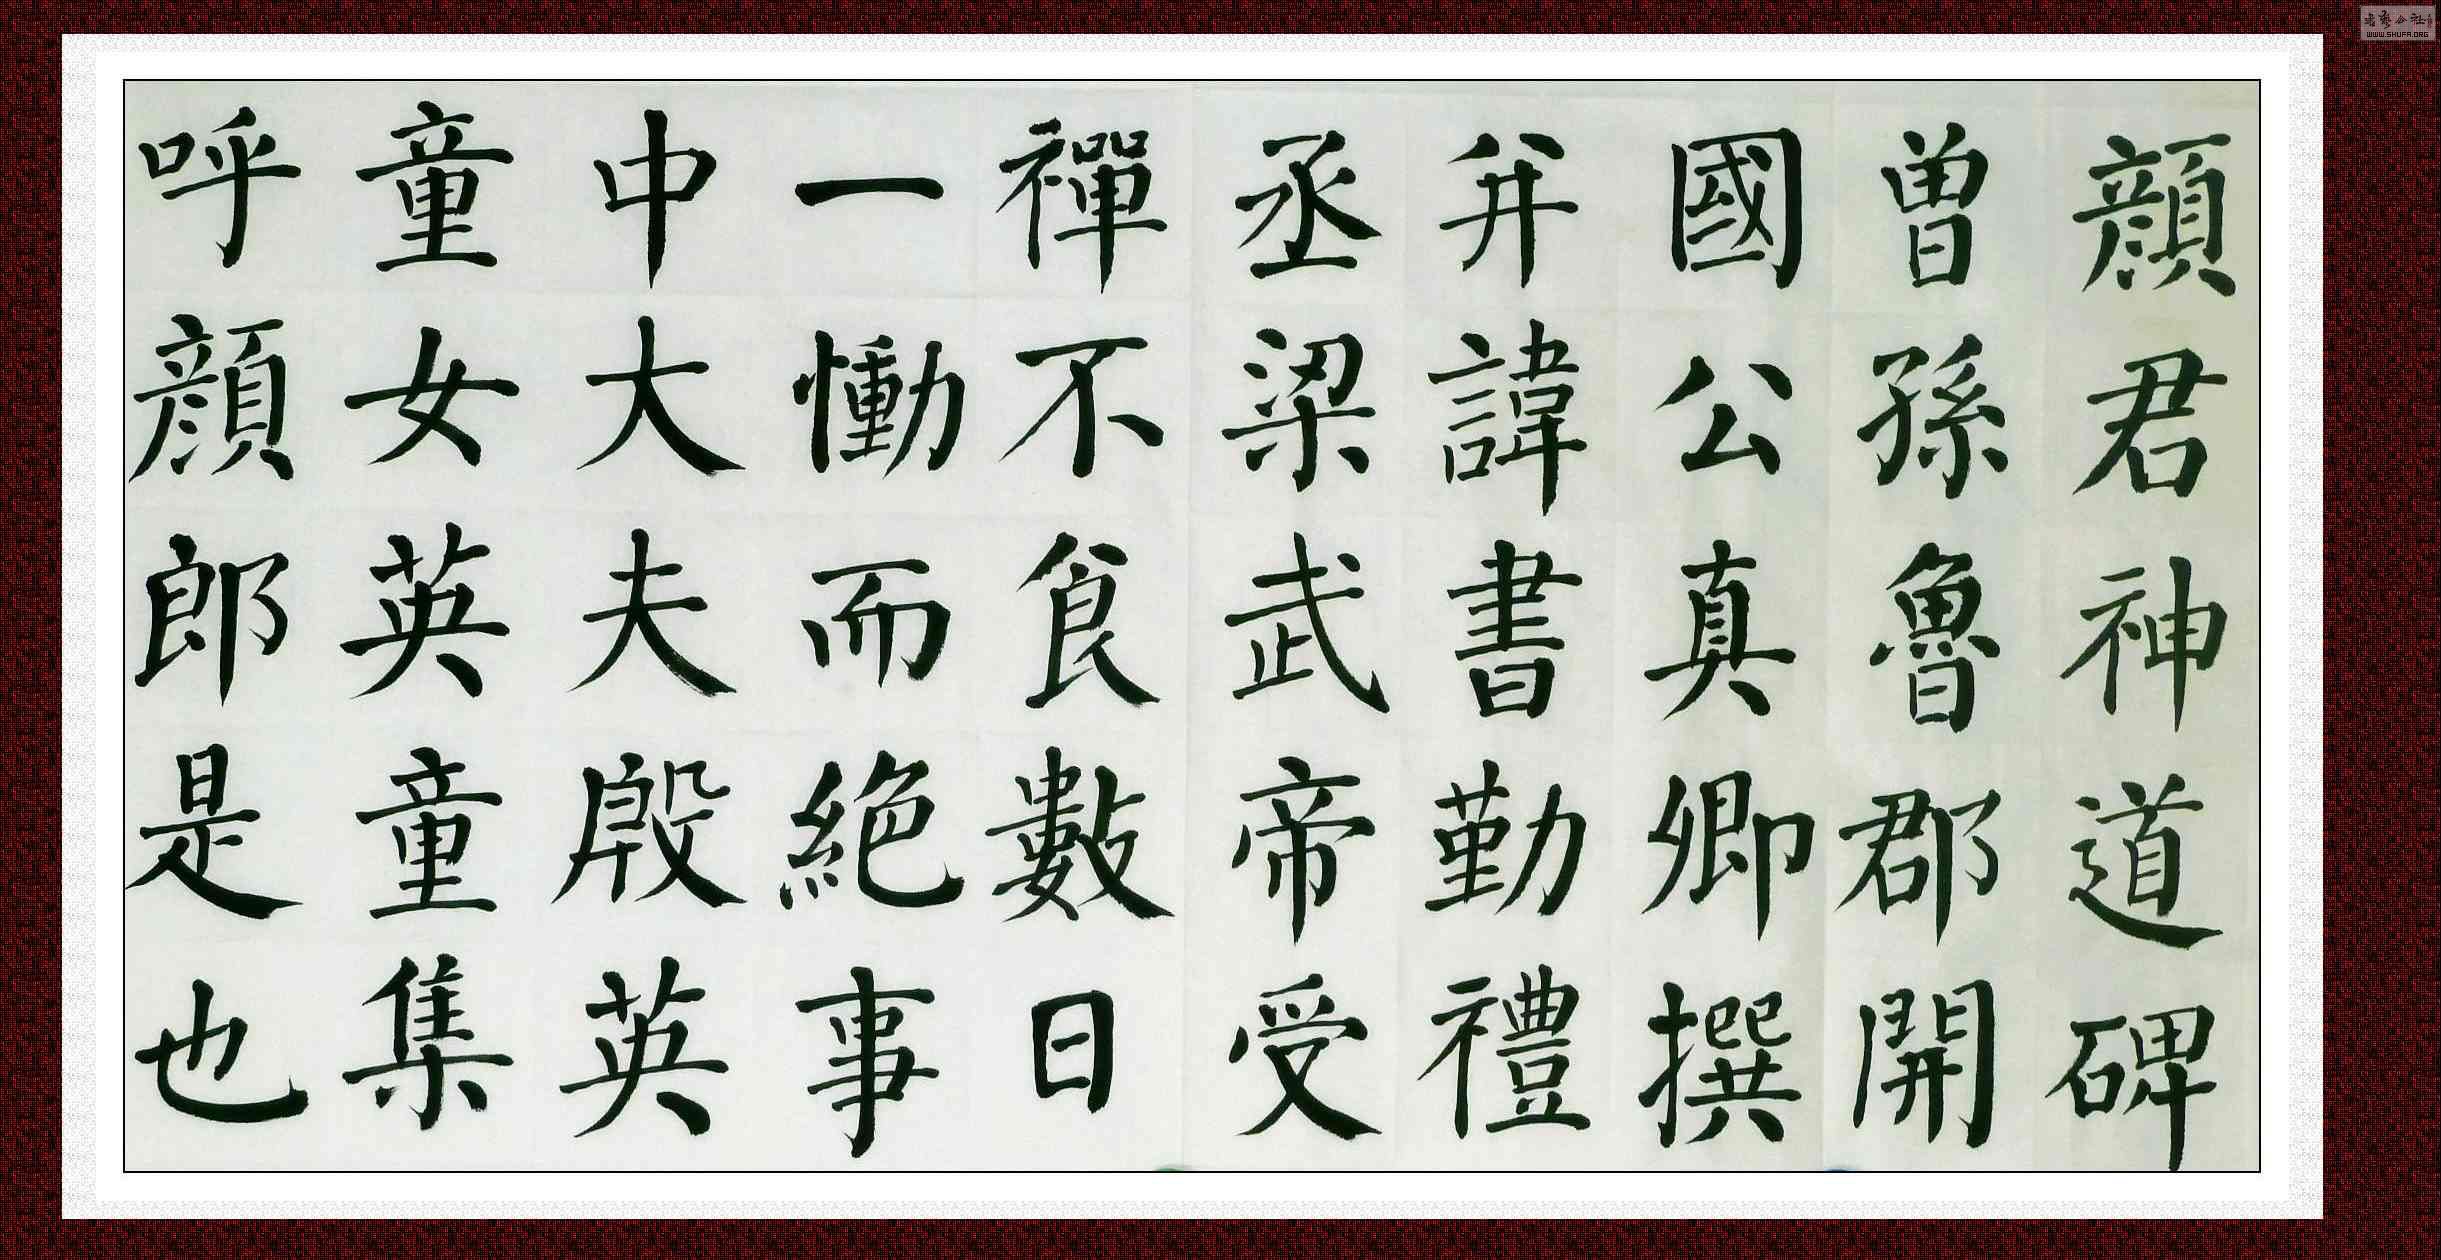 顏君神道碑
曾孫魯郡開
國公真卿撰
并諱書勤禮
丞梁武帝受
禪不食數日
一慟而絕事
中大夫殷英
童女英童集
呼顏郎是也
WWW.SHUFA.ORG